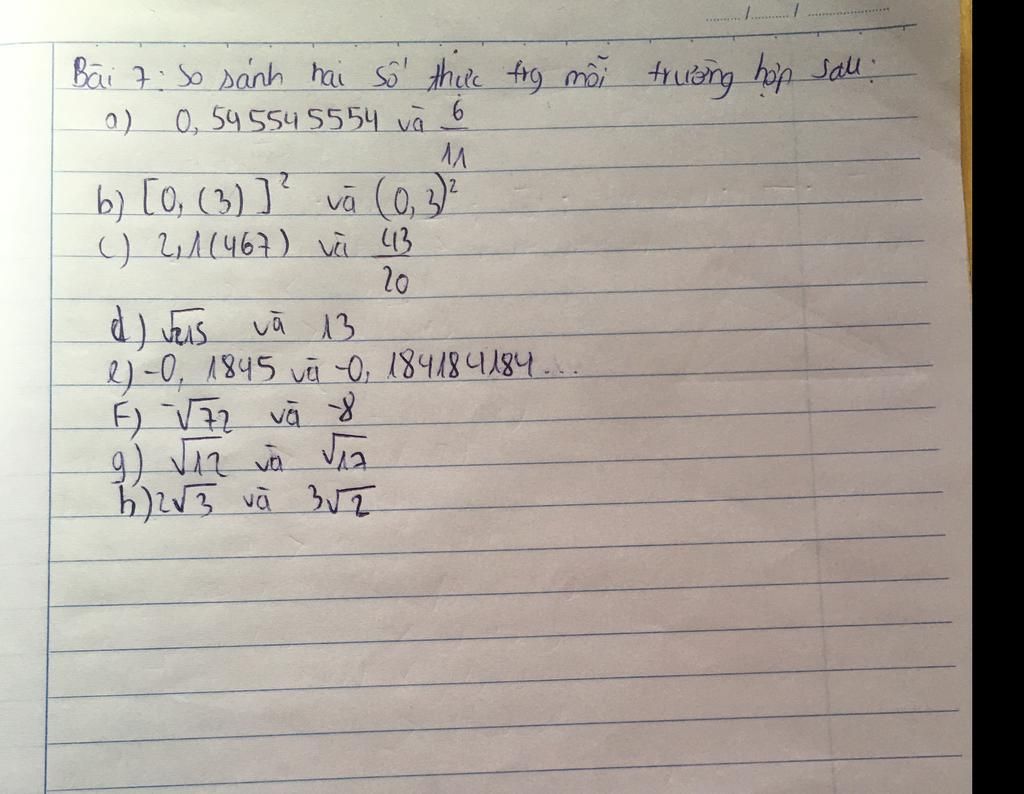 Bài 7: So sánh hai số thực trg mỗi trường hợp sau:
a) 0,545545554 và 6/11
b) [0,(3)]² và (0,3)²
c) 2,1(467) và 43/20
d) √215 và 13
e) -0,1845 và -0,184184184...
F) -√72 và -8
g) √12 và √17
h) 2√3 và 3√2